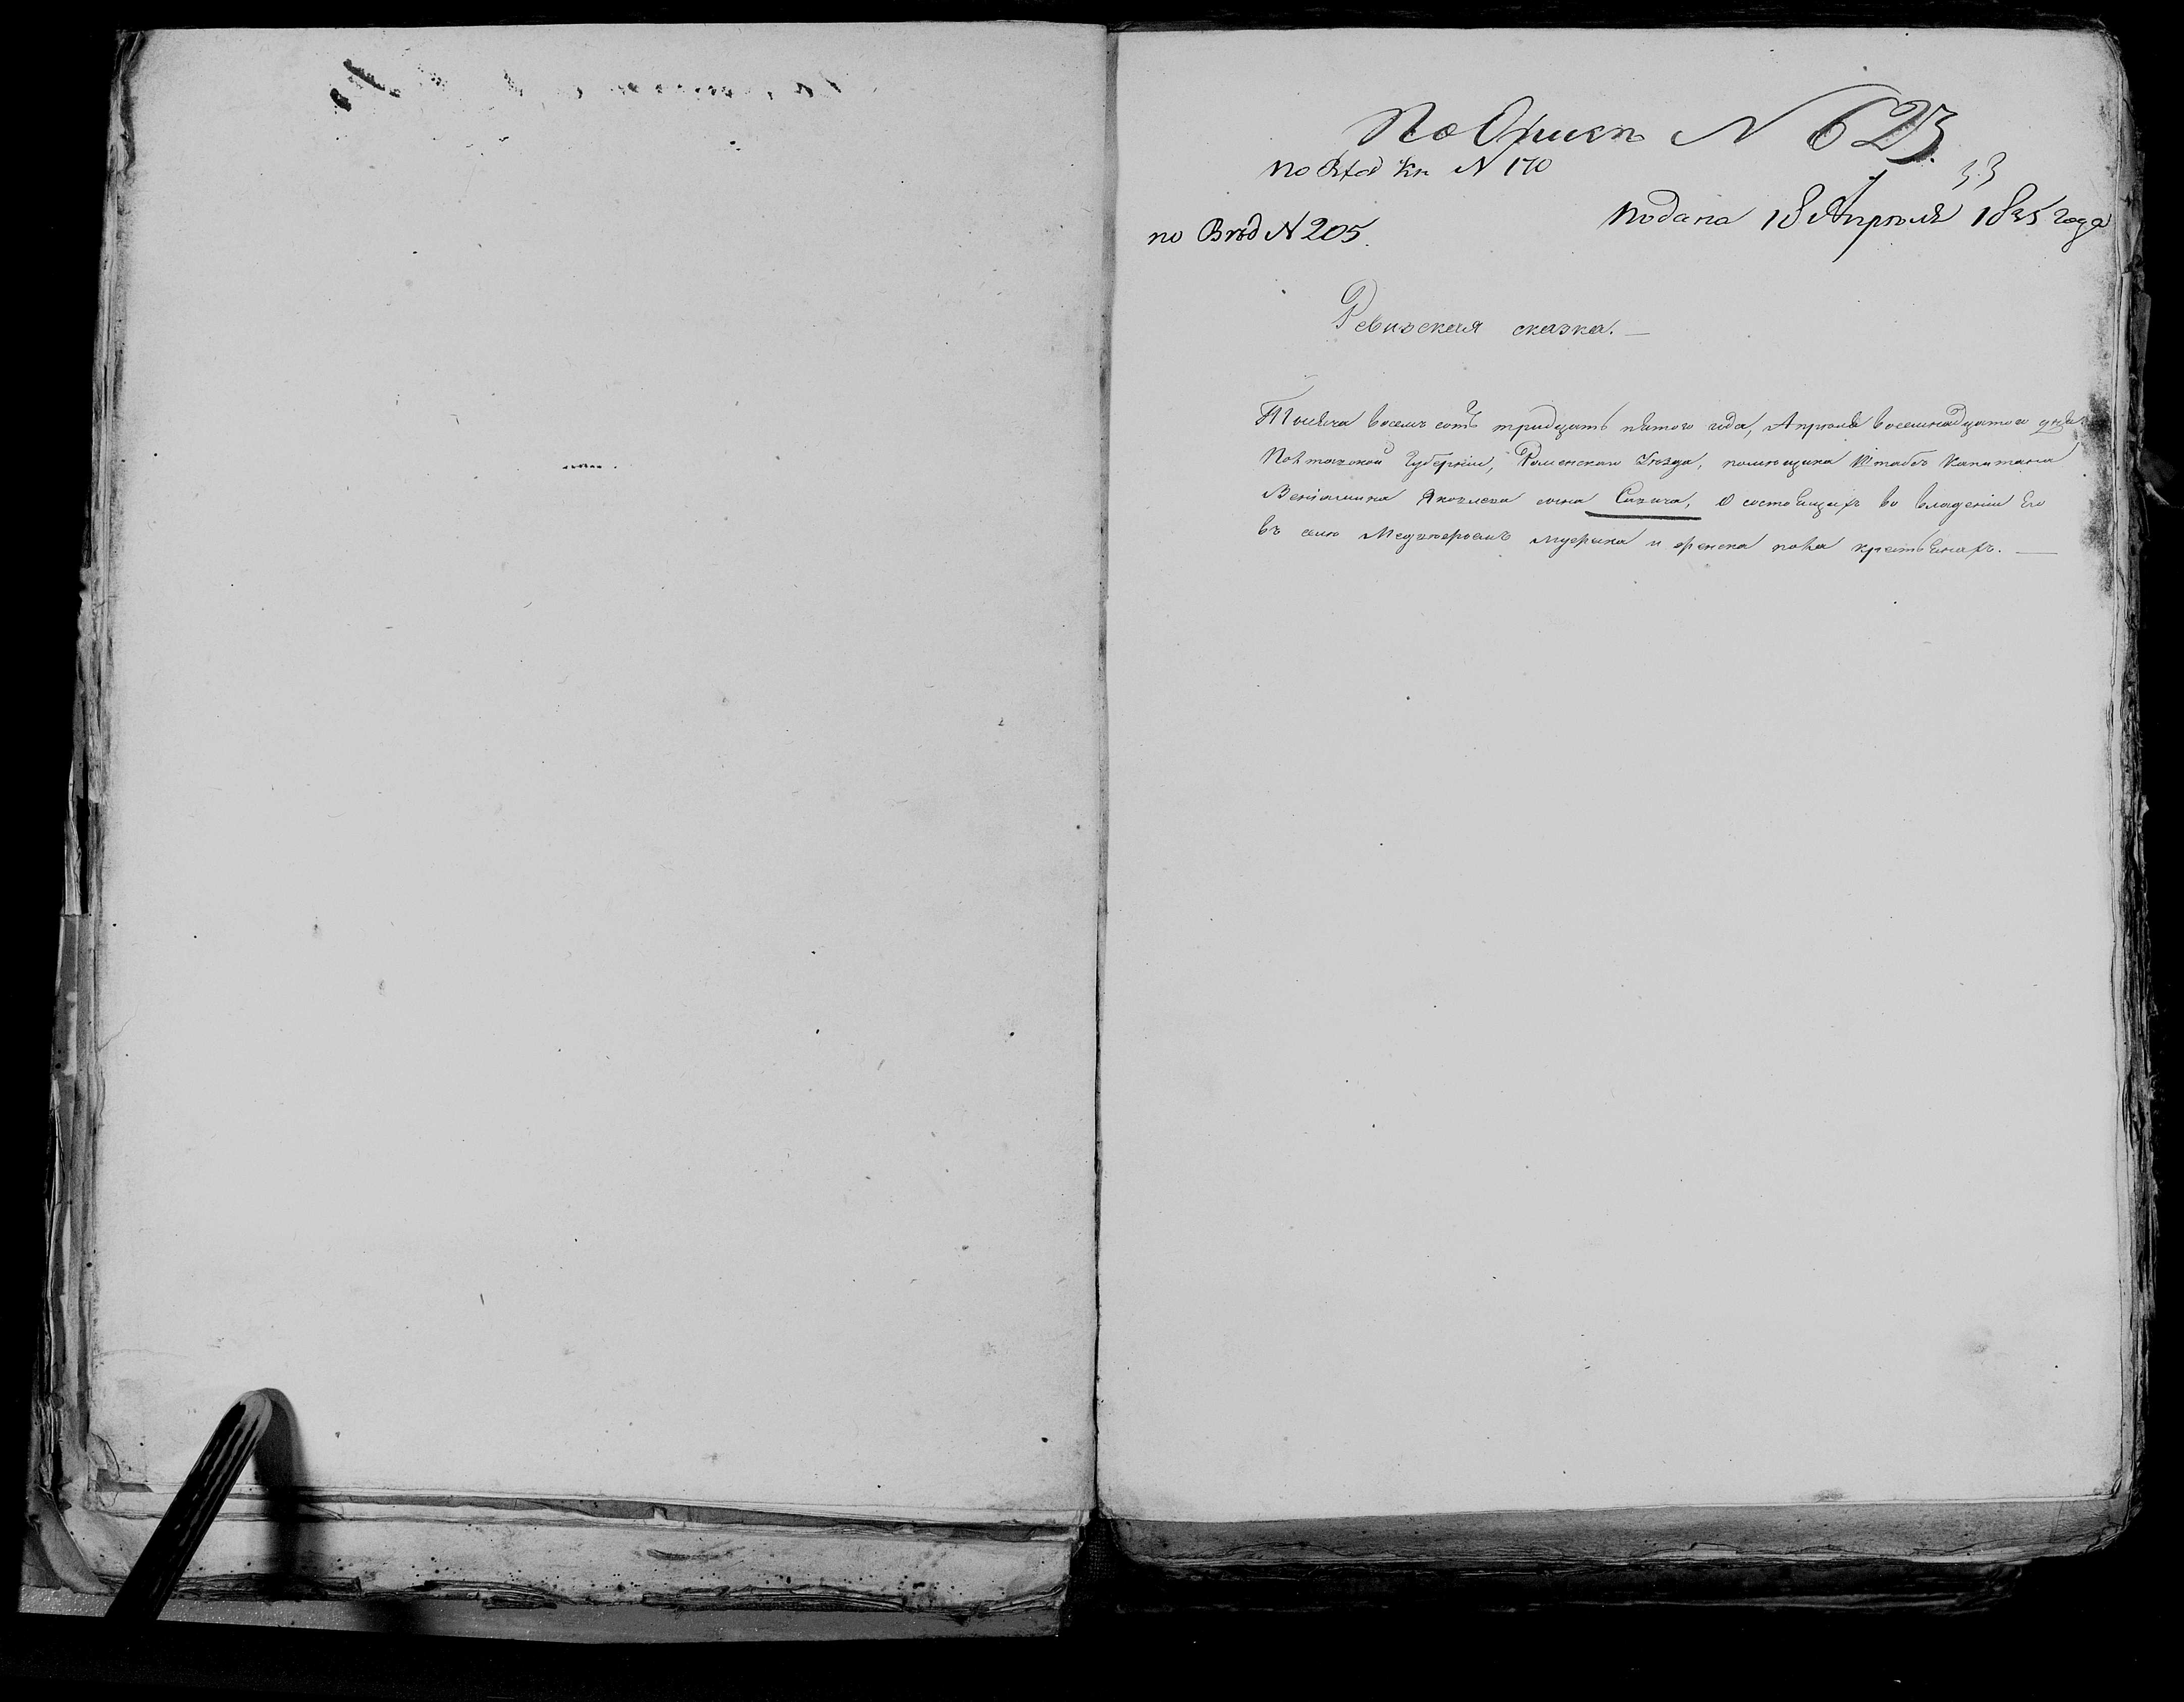 По Описи N 623
по Вход Кн N 170
33
подана 18 Апрѣля 1835 года
по Вѣд N 205.
Ревизская сказка.
Тысяча восемь сотъ тридцать пятого года, Апрѣля восемнадцатого дня
Полтавской Губерніи, Роменскаго Уѣзда, помѣщика Штабсъ Капитана
Веніамина Яковлева сына Савича, о состоящихъ во владеніи Его
въ селѣ мужеска и женска пола крестьянахъ.